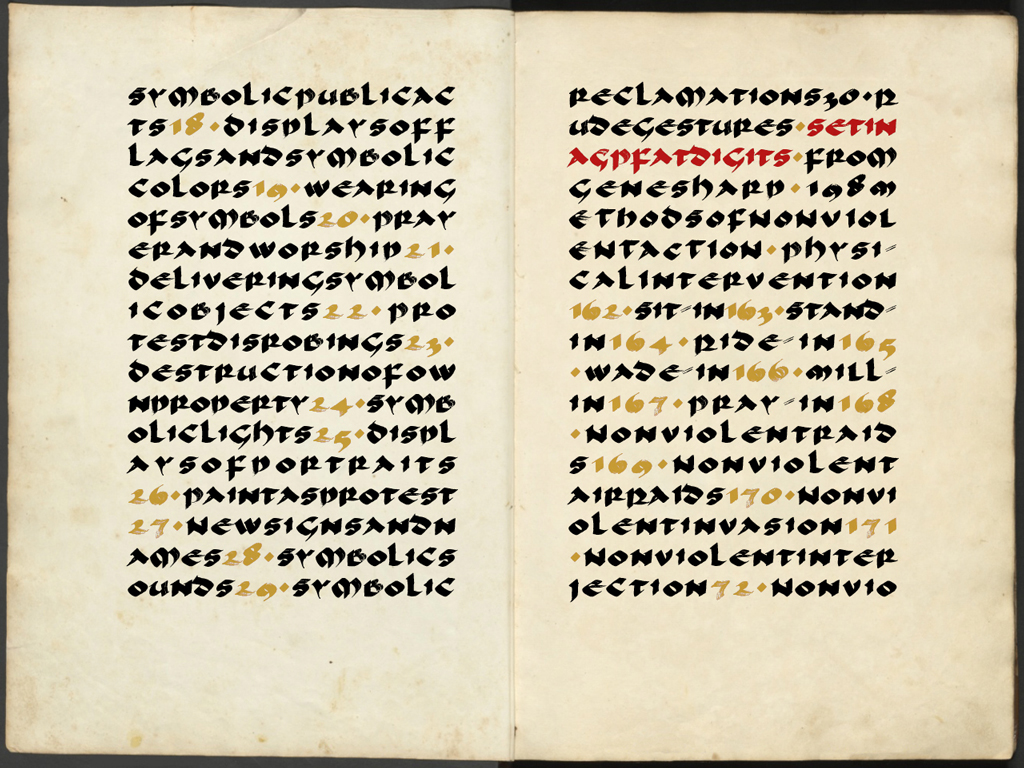 SYMBOLICPUBLICAC
TS18·DISPLAYSOFF
LAGSANDSYMBOLIC
COLORS19·WEARING
OFSYMBOLS20·PRAY
ERANDWORSHIP21·
DELIVERINGSYMBOL
ICOBJECTS22·PRO
TESTDISROBINGS23·
DESTRUCTIONOFOW
NPROPERTY24·SYMB
OLICLIGHTS25·DISPL
AYSOFPORTRAITS
26·PAINTASPROTEST
27·NEWSIGNSANDN
AMES28·SYMBOLICS
OUNDS29·SYMBOLIC
RECLAMATIONS30·R
UDEGESTURES·SETIN
AGPFATDIGITS·FROM
GENESHARP·198M
ETHODSOFNONVIOL
ENTACTION·PHYSI-
CALINTERVENTION
162·SIT-IN163·STAND-
IN164·RIDE-IN165
·WADE-IN166·MILL-
IN167·PRAY-IN168
·NONVIOLENTRAID
S169·NONVIOLENT
AIRRAIDS170·NONVI
OLENTINVASION171
·NONVIOLENTINTER
JECTION72·NONVIO